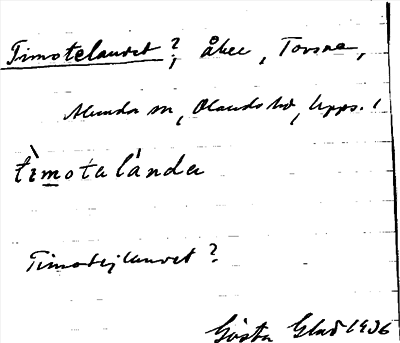 Timotelandet?, åker, Torsne,
Alunda sn, Olands hd, Upps. l
tìmotalánda
Timotejlandet?
Gösta Glad 1936